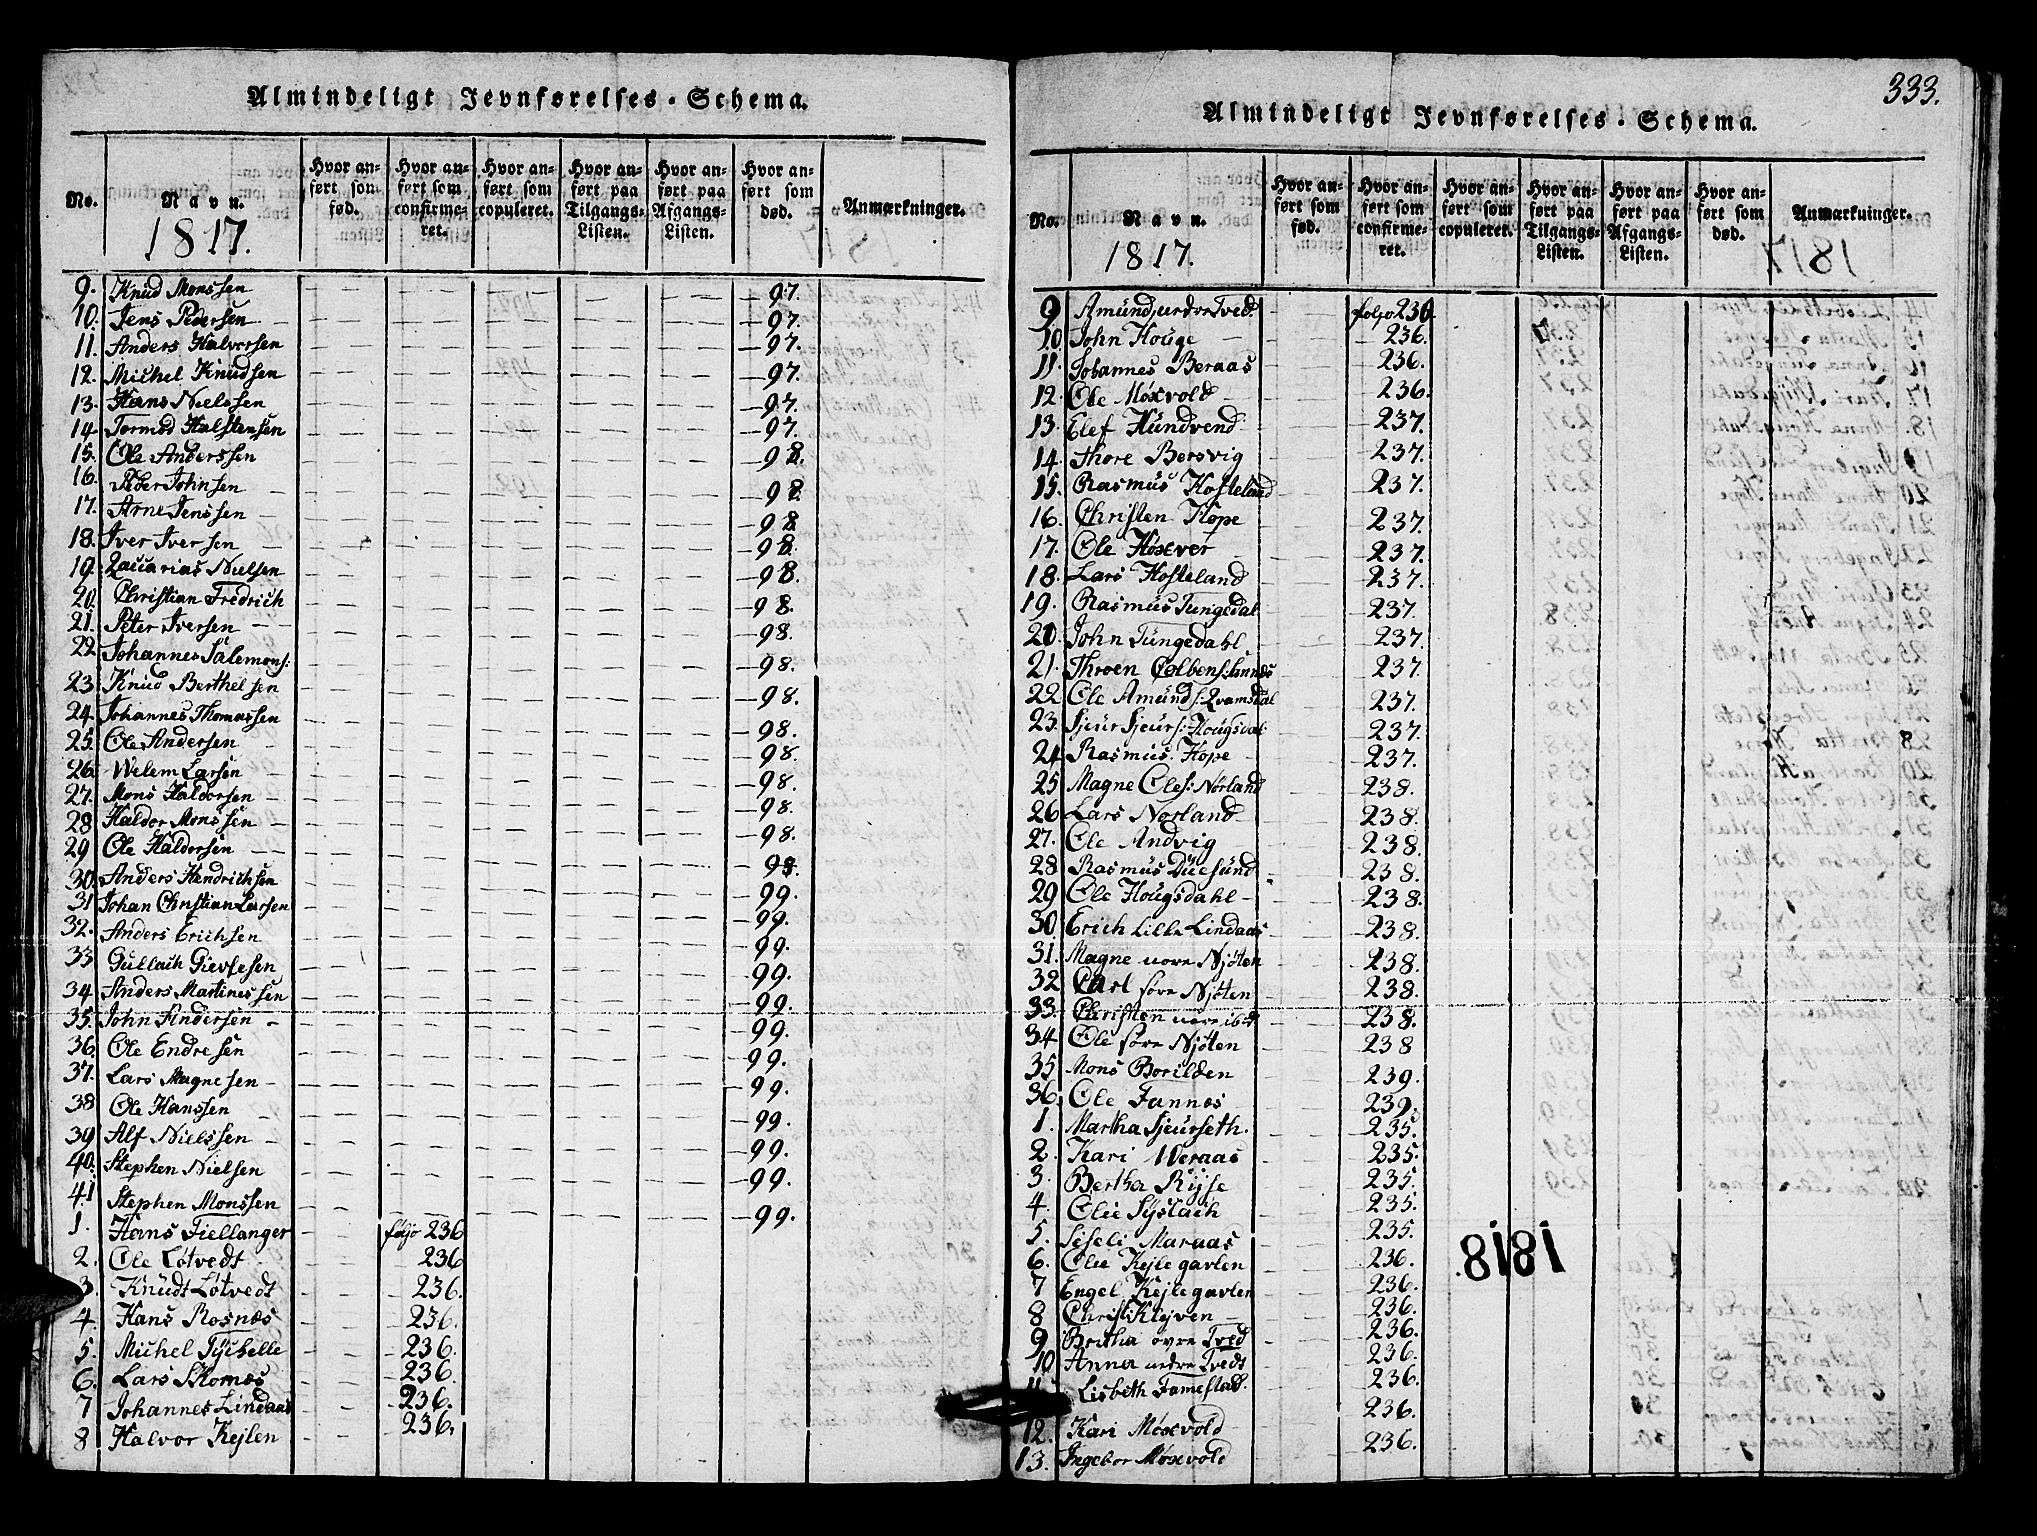 Almindeligt Jevnførelses-Schema.
No. Navn. 1817. Hvor anført som fød. Hvor anført som confirmeret. Hvor anført som copuleret. Hvor anført paa Tilgangs-Listen. Hvor anført paa Afgangs-Listen. Hvor anført som død. Anmærkninger.
9. Knud Monssen 97.
10. Jens Pedersen 97.
11. Anders Halversen 97.
12. Michel Knudsen 97.
13. Hans Nielssen 97.
14. Tormod Halstensen 97.
15. Ole Anderssen 98.
16. Peder Johnsen 98.
17. Arne Jenssen 98.
18. Iver Iversen 98.
19. Zacarias Nielsen 98.
20. Christian Fredrich 98.
21. Peter Iversen 98.
22. Johannes Salemons: 98.
23. Knud Berthelsen 98.
24. Johannes Thomassen 98.
25. Ole Andersen 98.
26. Welem Larsen 98.
27. Mons Haldorsen 98.
28 Haldor Monssen 98.
29 Ole Haldorsen 98.
30. Anders Hendrichsen 99.
31 Johan Christian Larsen 99.
32. Anders Erichsen 99.
33 Gullach Gievlesen 99.
34 Anders Martinessen 99.
35. John Andersen 99.
36. Ole Endresen 99.
37. Lars Magnesen 99.
38 Ole Hanssen 99.
39 Alf Nielssen 99.
40. Stephen Nielsen 99.
41 Stephen Monssen 99.
1. Hans Fiellanger foljo 236
2. Ole Løtvedt 236
3. Knudt Løtvedt 236.
4. Hans Rosnæs 236.
5. Michel Tychelle 236.
6. Lars Skornæs 236.
7 Johannes Lindaas 236.
8 Halvor Kejlen 236.
333.
Almindeligt Jevnførelses-Schema.
No. Navn. 1817. Hvor anført som fød. Hvor anført som confirmeret. Hvor anført som copuleret. Hvor anført paa Tilgangs-Listen. Hvor anført paa Afgangs-Listen. Hvor anført som død. Anmærkninger.
9 Amund Tved foljo 236.
10 John Houge 236.
11. Johannes Beraas 236.
12. Ole Moxvold 236.
13. Elef Hundvend 237.
14. Thore Bersvig 237.
15. Rasmus Hosteland 237.
16. Christen Hope 237.
17. Ole Høxver 237.
18. Lars Hosteland 237.
19. Rasmus Tungedal 237.
20 John Tungedahl 237.
21. Throen Colbens: 237.
22 Ole Amunds: Qvamsdal 237.
23. Sjeur Sjeurs: Hougsdal 237.
24 Rasmus Hope 237.
25 Magne Oles: Norland 238.
26 Lars Norland 238.
27. Ole Andvig 238.
28 Rasmus Duesund 238.
29 Ole Hougsdahl 238.
30. Erich Lille Lindaas 238.
31. Magne nore Njøten 238.
32 Carl søre Njøten 238.
33. Christen nore ibd 238.
34 Ole søre Njøten 238
35 Mons Borilden 239.
36. Ole Fannæs 239.
1. Martha Sjeurseth. 235.
2. Kari Weraas 235.
3. Bertha Rijse 235.
4. Olie Syslach 235.
5. Seseli Maraas 235.
6. Olie Kejlegavlen 236.
7 Engel Kejlegavlen 236.
8 Christi Klejven 236.
9 Britha øvre Tved 236.
10 Anna nedre Tvedt 236.
11. Lisbeth Famestad. 236.
12. Kari Moxvold 236.
13. Ingebor Moxvold 236.